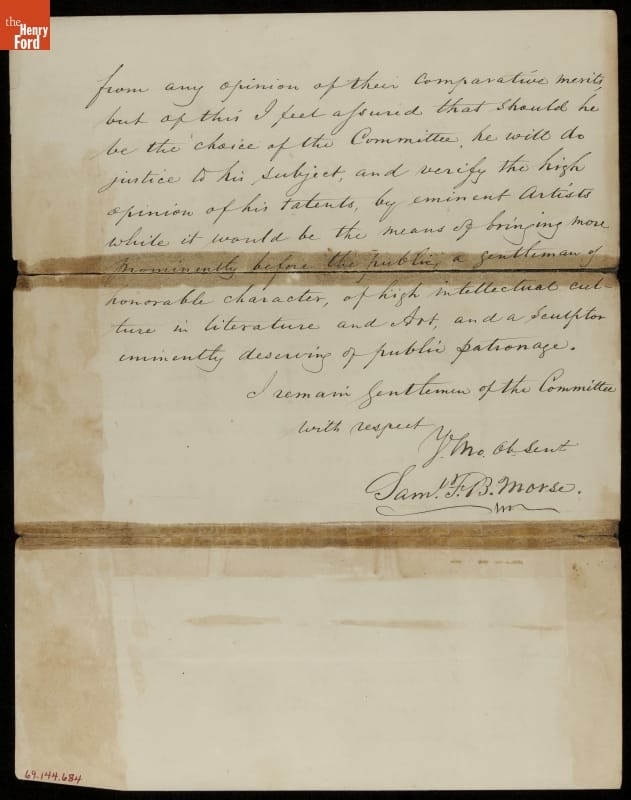 the
Henry
Ford
from any opinion of their comparative merits,
but of this I feel assured that should he
be the choice of the Committee, he will do
justice to his subject, and verify the high
opinion of his talents, by eminent Artists
while it would be the means of bringing more
prominently before the public, a gentleman of
honorable character, of high intellectual cul-
ture in literature and Art, and a Sculptor
eminently deserving of public patronage.
I remain Gentlemen of the Committee
with respect
Yr. Mo. Ob. Sent
Saml. F. B. Morse.
69.144.684